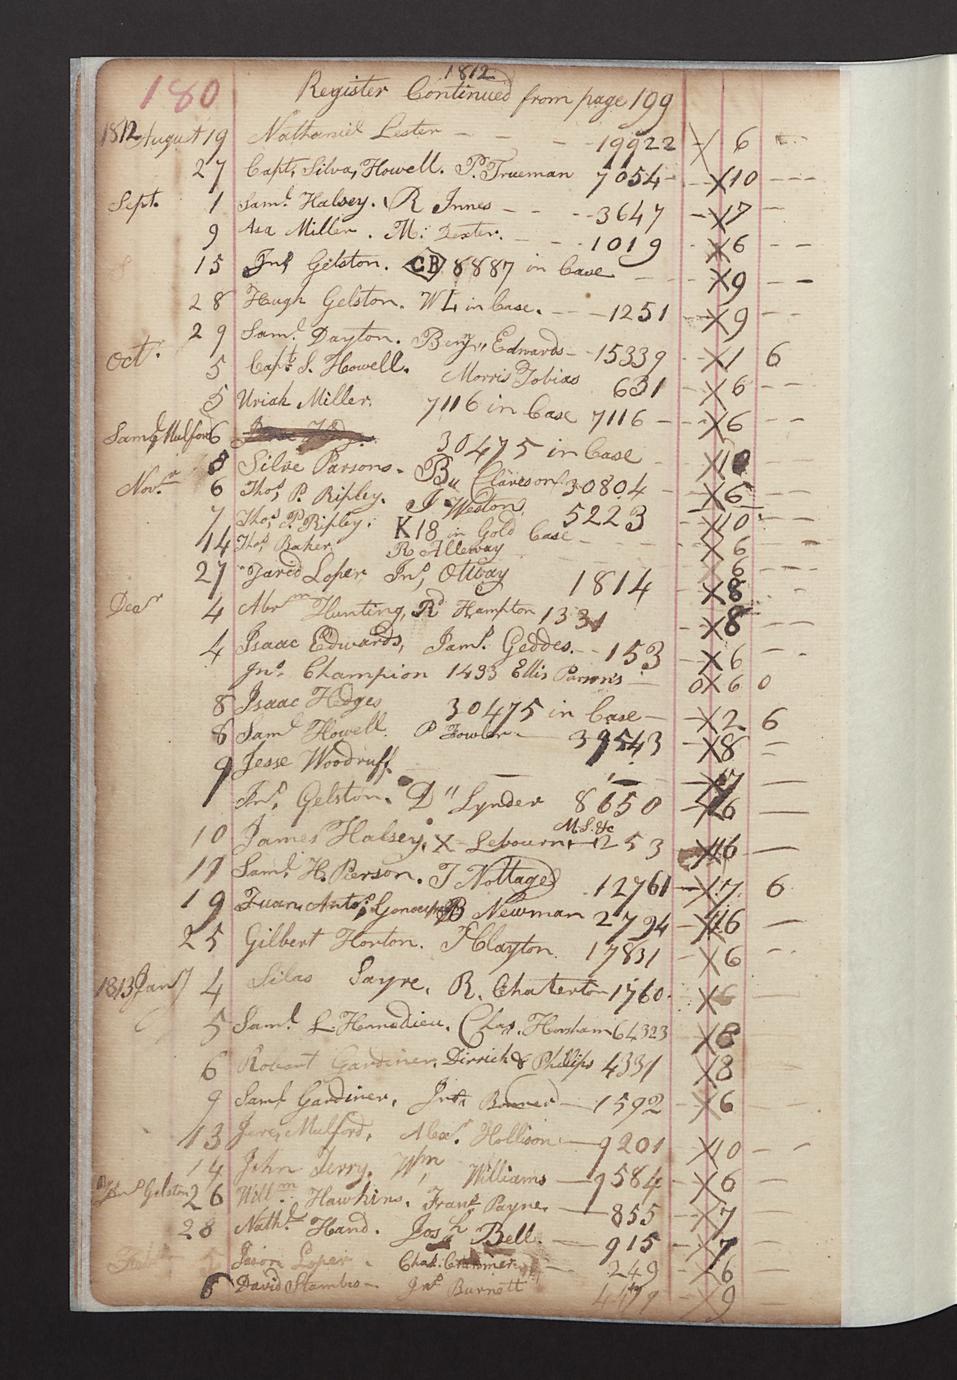 180
1812
Register Continued from page 199
1812 August 19 Nathaniel Lester - - - 19922 - X 6
27 Capt. Silva, Howell. P. Trueman 7054 - X 10 - -
Sept. 1 Saml. Halsey. R Innes - - - 3647 - X 17 -
9 Asa Miller. M: Dexter. - - - 1019 - X 6 - -
15 Jno. Gelston. CB 8887 in Case - X 9 - -
28 Hugh Gelston. W L in Case. - - - 1251 - X 9 - -
29 Saml. Dayton. Benjn. Edwards - 15339 - X 1 6
Oct. 5 Capt. S. Howell. Morris Tobias 631 - X 6 - -
5 Uriah Miller. 7116 in Case 7116 - X 6 - -
Saml. Mulford 6 30475 in Case - X
8 Silve Parsons. Clareson 30804 - X 6 -
Novr. 6 Thos. P. Ripley. J Weston 5223 - X 10 -
7 Thos. P. Ripley. K18 in Gold Case - - X 6
14 Thos. Baker R Alleway 6
27 Jared Loper Jno, Ottway 1814 - X 8 -
Decr 4 Abrm Hunting, Rd Hampton 1331 X 8
4 Isaac Edwards, Jams. Geddes. - - 153 - X 6 - -
Jno. Champion 1433 Ellis Parsons - 0X 6 0
8 Isaac Hedges 30475 in Case - - X 2 6
8 Saml. Howell. P Fowler - 39543 - X 8 -
9 Jesse Woodruff. - - X 17 -
Jno, Gelston. D" Lynder 8650 - X 6 -
M.S. &c
10 James Halsey, X - Lebourn 1253 - X 16 -
11 Saml. H. Pierson. T Nottage 12761 - X 7 6
19 Juan, Anto, B Newman 2794 - X 16 -
25 Gilbert Horton. J Clayton 17831 - X 6 -
1813 Jany 4 Silas Sayre. R. Chaterton 1760 - X 6 -
5 Saml. L. Homedieu. Chas. Horsham 64323 X 8 -
6 Robert Gardiner. Dirrick & Phillips 4331 X 8 -
9 Saml Gardiner, - 1592 - X 6 -
13 Jere, Mulford, Alexr. Hollison - 9201 X 10 - -
14 John Terry. Wm, Williams - 9584 - X 6 -
Jno. Gelston 26 Willm. Hawkins. Frans. Payne. - 855 - X 7 -
28 Nathl. Hand. Josh Bell. - 915 - X 7 -
Feb. 5 Jason Loper. Chas. 249 - X 6 -
6 David Stambro - Jno. Burnett X 9 -